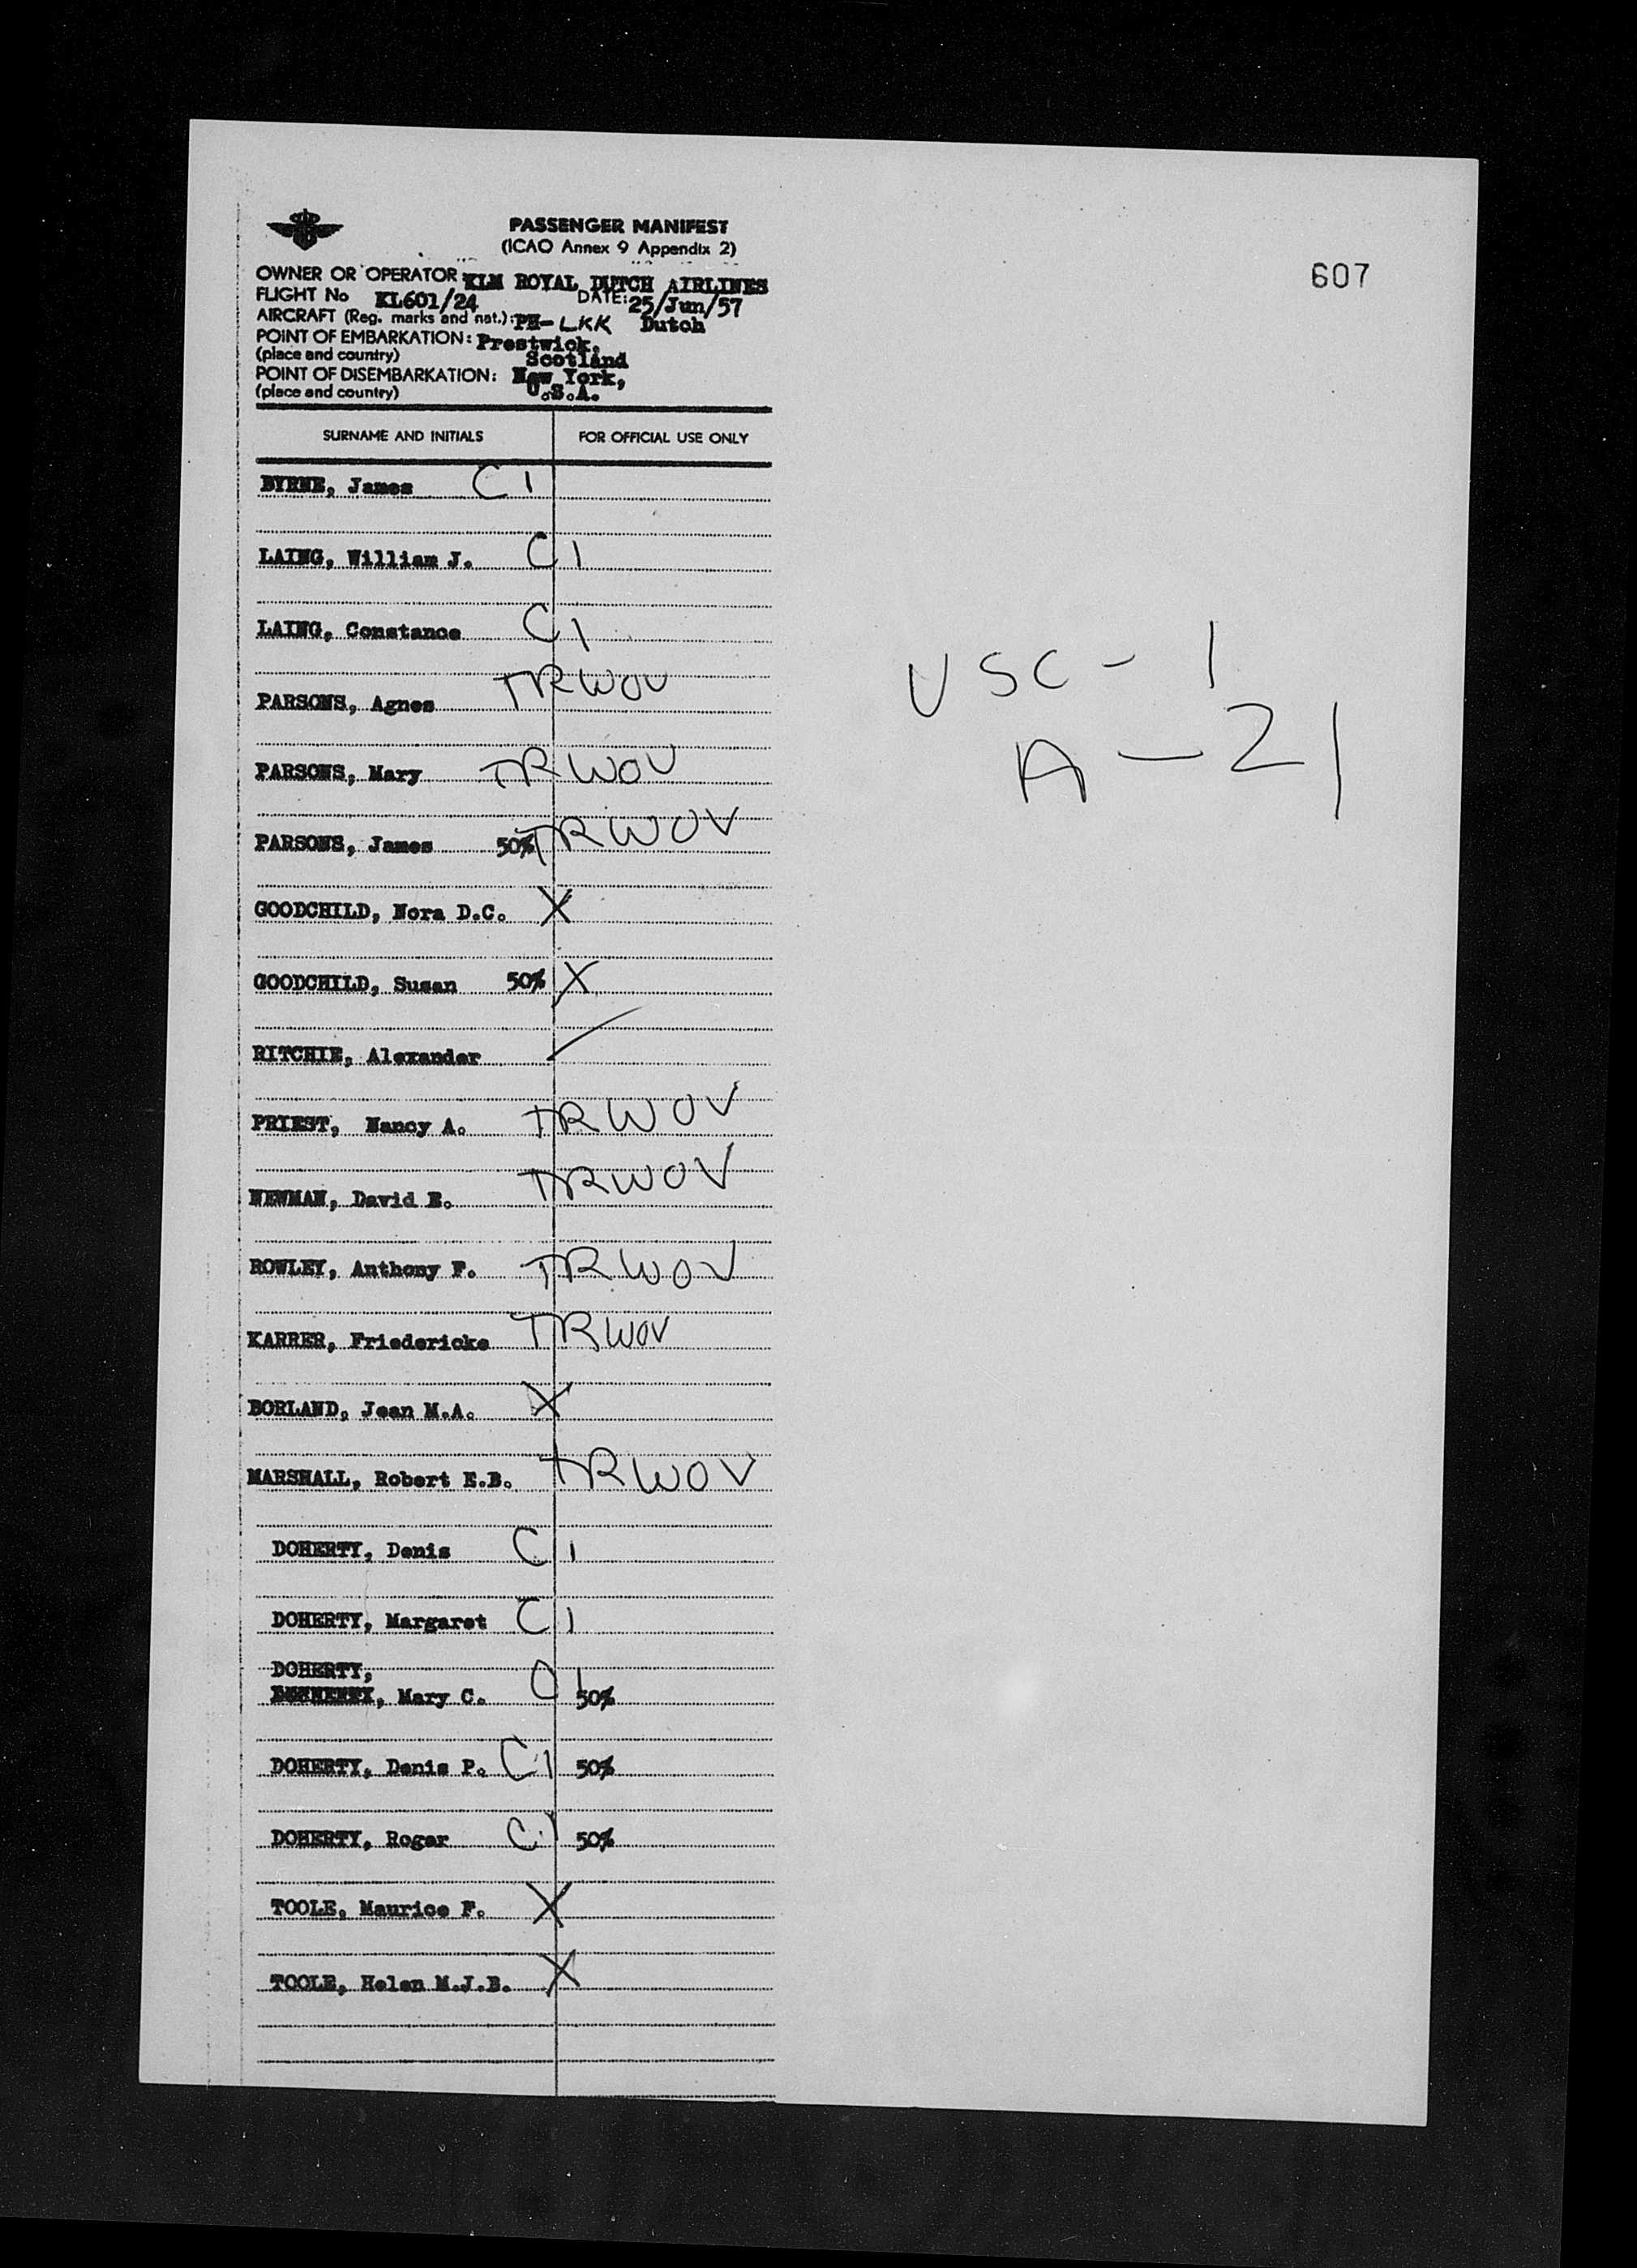 PASSENGER MANIFEST
(ICAO Annex 9 Appendix 2)
607
OWNER OR OPERATOR KLM ROYAL DUTCH AIRLINES
FLIGHT No KL601/24 DATE: 25/Jun/57
AIRCRAFT (Reg. marks and nat.): PH-LKK Dutch
POINT OF EMBARKATION: Prestwick,
(place and country) Scotland
POINT OF DISEMBARKATION: New York,
(place and country) U.S.A.
SURNAME AND INITIALS FOR OFFICIAL USE ONLY
BYRNE, James C 1
LAING, William J. C 1
LAING, Constance C 1
USC - 1
PARSONS, Agnes TRWOV
A - 21
PARSONS, Mary TRWOV
PARSONS, James 50% TRWOV
GOODCHILD, Nora D.C. X
GOODCHILD, Susan 50% X
RITCHIE, Alexander
PRIEST, Nancy A. TRWOV
NEWMAN, David E. TRWOV
ROWLEY, Anthony F. TRWOV
KARRER, Friedericke TRWOV
BORLAND, Jean M.A. X
MARSHALL, Robert E.B. TRWOV
DOHERTY, Denis C 1
DOHERTY, Margaret C 1
DOHERTY,
Mary C. C 1 50%
DOHERTY, Denis P. C 1 50%
DOHERTY, Roger C 1 50%
TOOLE, Maurice F. X
TOOLE, Helen M.J.B. X